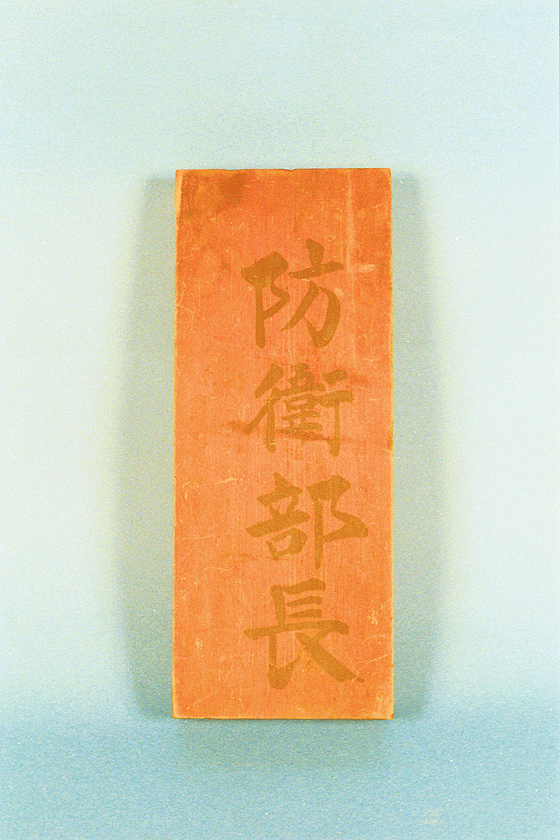 防衛部長